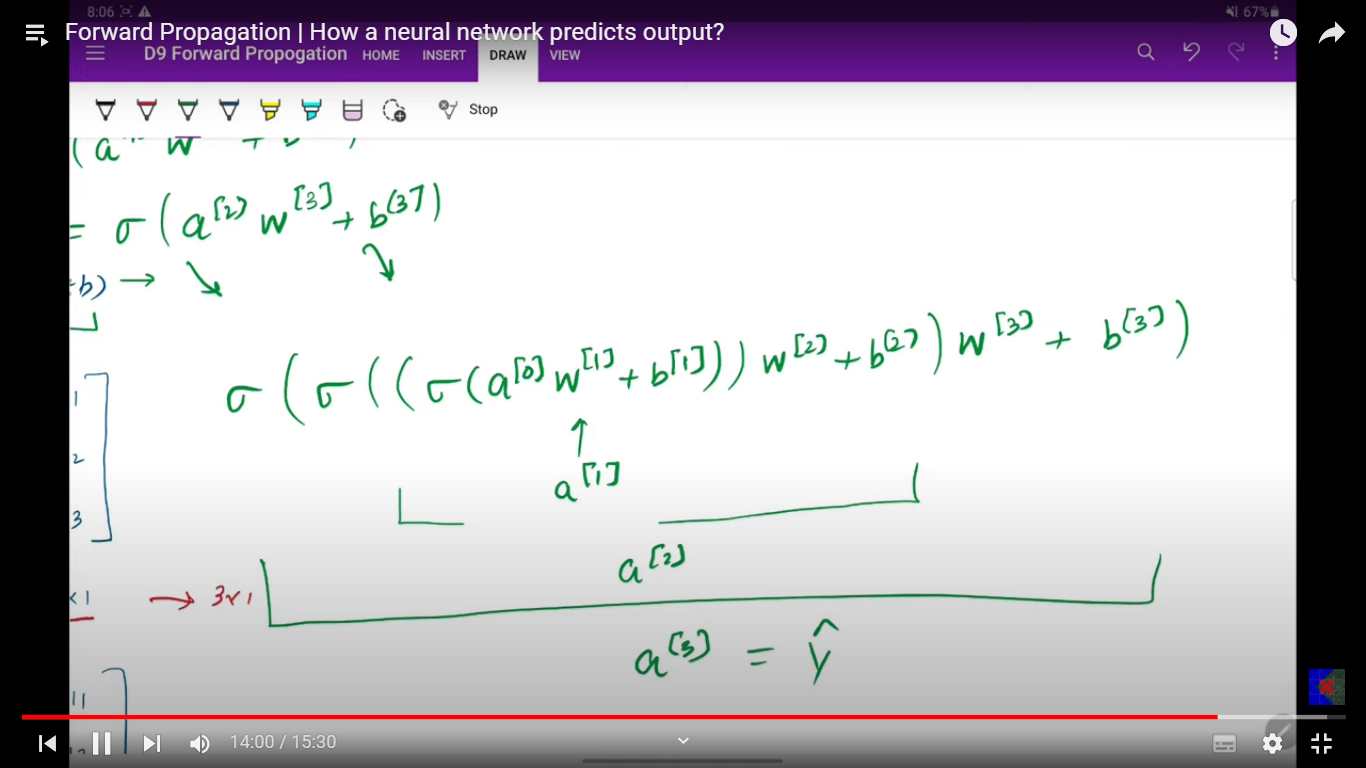 8:06 67%
Forward Propagation | How a neural network predicts output?
D9 Forward Propogation HOME INSERT DRAW VIEW
Stop
= σ(a[2] w[3] + b[3])
+b) →
σ(σ((σ(a[0] w[1] + b[1])) w[2] + b[2]) w[3] + b[3])
1
a[1]
2
3
a[2]
x1 → 3x1
a[3] = ŷ
11
14:00 / 15:30